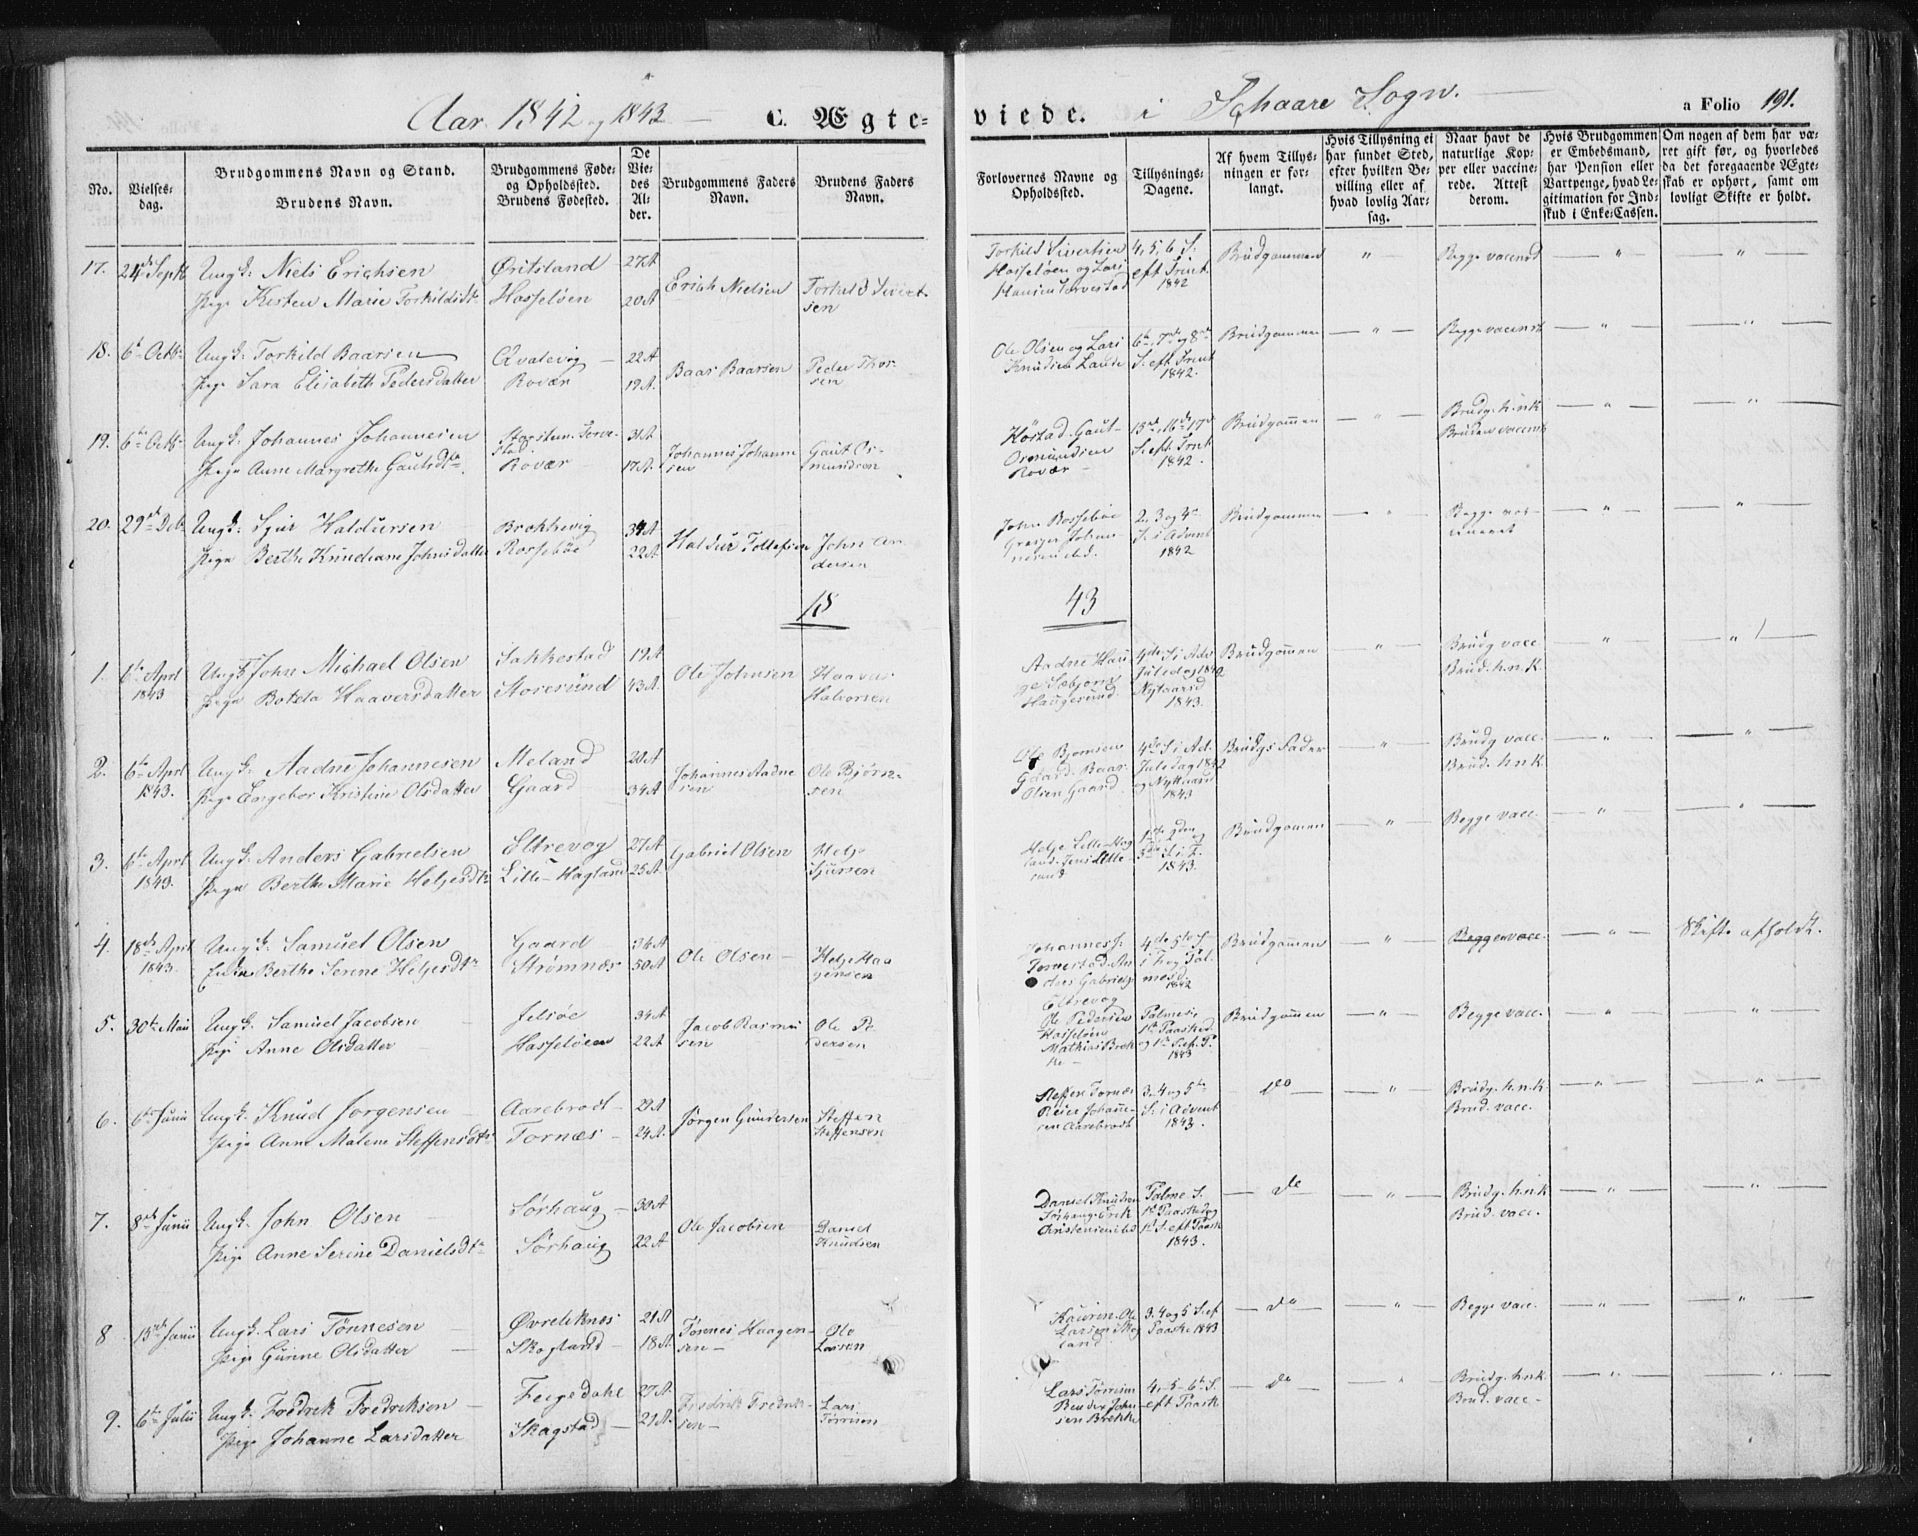 Aar 1842 og 1843 — C. Ægte-
viede. i Schaare Sogn. —
a Folio 191.
No.
Vielses-
dag.
Brudgommens Navn og Stand.
Brudens Navn.
Brudgommens Føde-
og Opholdssted.
Brudens Fødested.
De
Vie-
des
Al-
der.
Brudgommens Faders
Navn.
Brudens Faders
Navn.
Forlovernes Navne og
Opholdssted.
Tillysnings-
Dagene.
Af hvem Tillys-
ningen er for-
langt.
Hvis Tillysning ei
har fundet Sted,
efter hvilken Be-
villing eller af
hvad lovlig Aar-
sag.
Naar havt de
naturlige Kop-
per eller vaccine-
rede. Attest
derom.
Hvis Brudgommen
er Embedsmand,
har Pension eller
Vartpenge, hvad Le-
gitimation for Ind-
skud i Enke-Cassen.
Om nogen af dem har væ-
ret gift før, og hvorledes
da det foregaaende Ægte-
skab er ophørt, samt om
lovligt Skifte er holdt.
17. 24de Septb Ungk: Niels Erichsen Øritsland 27A
Pige Kirsten Marie Torkildsdt Hasseløen 20A
Erich Nielsen Torkild Sivert-
sen
Torkild Sivertsen
Hasseløen og Lars
Hansen Torvestad
4, 5, 6 S.
eft Trint.
1842
Brudgommen — " — Begge vaccined — " — — " —
18. 6te Octb Ungk: Torkild Baarsen Qvalevig 22A
Pige Sara Elisabeth Pedersdatter Rovær 19A.
Baar Baarsen Peder Thor-
sen
Ole Olsen og Lars
Knudsen
6te, 7de og 8de
S. eft Trint
1842.
Brudgommen — " — Begge vaccinet — " — — " —
19. 6te Octb Ungk. Johannes Johannesen Storsteen. Torve-
stad 31A
Pige Anne Margrethe Gautsdtr. Rovær 17A.
Johannes Johanne
sen Gaut Os-
mundsen
Høstad. Gaut
Osmundsen
Rovær —
15de, 16de 17de
S. eft Trnt
1842.
Brudgommen — " — Brudg. h.n.k
Bruden vaccinet — " — — " —
20. 29de Deb Ungk: Sjur Haldursen Brækkevig 34A
Pige Berthe Knudiane Johnsdatter Rossebøe 22A
Haldur Tollefsen John An-
dersen
John Rossebøe
2, 3 og 4de
S. i Advent
1842
Brudgommen — " — Begge vac-
cineret — " — — " —
18 43
1. 6te Aprl
1843 Ungk John Michael Olsen Sakkestad 19A
Pige Botela Haaversdatter Storesund 43A.
Ole Johnsen Haaver
Halvorsen
Aadne Hau
ge Sæbjørn
Haugesund
4de S. i Adv
Juledag 1842
Nytaarsd
1843.
Brudgommen — " — Brudg vacc
Brud. h.n.K. — " — — " —
2. 6te Aprl
1843. Ungk: Aadne Johannesen Meland 20A
Pige Engebor Kristine Olsdatter Gaard 34A
Johannes Aadne
sen Ole Bjørn-
sen
Ole Bjørnsen
Gaard. Baar
Olsen Gaard
4de S. i Ad.
Juledag 1842
og Nyttaarsd
1843
Brudgs Fader — " — Brudg vacc.
Brud. h.n.k. — " — — " —
3. 6te Aprl
1843. Ungk: Anders Gabrielsen Eltrevog 27A
Pige Berthe Marie Heljesdtr Lille-Hagland 25A
Gabriel Olsen Helje
Sjursen
Helje Lille-Hag
land.
1ste 2den og
3die S. i F.
1843.
Brudgommen — " — Begge vacc. — " — — " —
4. 18de Aprl
1843. Ungk. Samuel Olsen Gaard 36A
Enken Berthe Serine Heljesdtr Strømnæs 50A
Ole Olsen — Helje Haa
gensen
Johannes
Torvestad. An
ders Gabrielsen
Eltrevog
4de 5te S.
i F og Pal
mesd
1842
Brudgommen — " — Begge vacc. — " — Skifte afholdt.
5. 30te Mai Ungk. Samuel Jacobsen Jelsøe 34A
Pige Anne Olsdatter Hasseløen 22A
Jacob Rasmu
sen Ole Pe
dersen
Ole Pedersen
Hasseløen
Mathias Bræk
ke —
Palmes.
1ste Paasked
og 1ste S. ef. P.
1843
Brudgommen — " — Begge vacc. — " — — " —
6. 6te Junii Ungk. Knud Jørgensen — Aarebrodt — 29A
Pige Anne Malene Steffensdtr Tornæs — 24A.
Jørgen Gundersen Steffen
Steffensen
Steffen Tornæs
Reier Johanne-
sen Aarebrodt
3. 4 og 5te
S. i Advent
1843.
do — " — Brudg. h.n.k.
Brud. vacc. — " — — " —
7. 8de Junii Ungk. John Olsen — Sørhaug — 30A
Pige Anne Serine Danielsdtr Sørhaug 22A
Ole Jacobsen — Daniel
Knudsen
Daniel Knudsen
Sørhaug. Erik
Christensen ibd
Palme S.
1ste Paaskedag
1ste S. eft Paask
1843.
— do — — " — Brudg. h.n.k
Brud. vacc. — " — — " —
8. 13de Junii Ungk. Lars Tønnesen Øvreliknæs 21A
Pige Gurine Olsdatter — Skogland — 18A
Tønnes Haagen-
sen — Ole
Larsen
Ole
Larsen Skog
land
3. 4 og 5 S. ef
Paaske 1843
— do — — " — Begge vacc. — " — — " —
9. 6te Julii Ungk. Fredrik Fredriksen — Feigedahl 27A.
Pige Johanne Larsdatter Skagstad — 21A.
Fredrik Fredrik-
sen — Lars
Tørrisen
Lars Tørrisen
Bendix John-
sen Brække
4 - 5 - 6te S.
eft Paask
— do — — " — Brudg. h.n.k.
Brud. vacc — — " — — " —